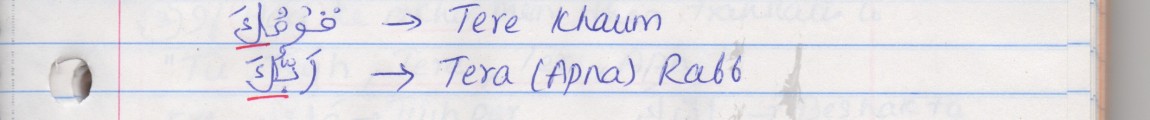 قَوْمُكَ → Tere Khaum
رَبُّكَ → Tera (Apna) Rabb